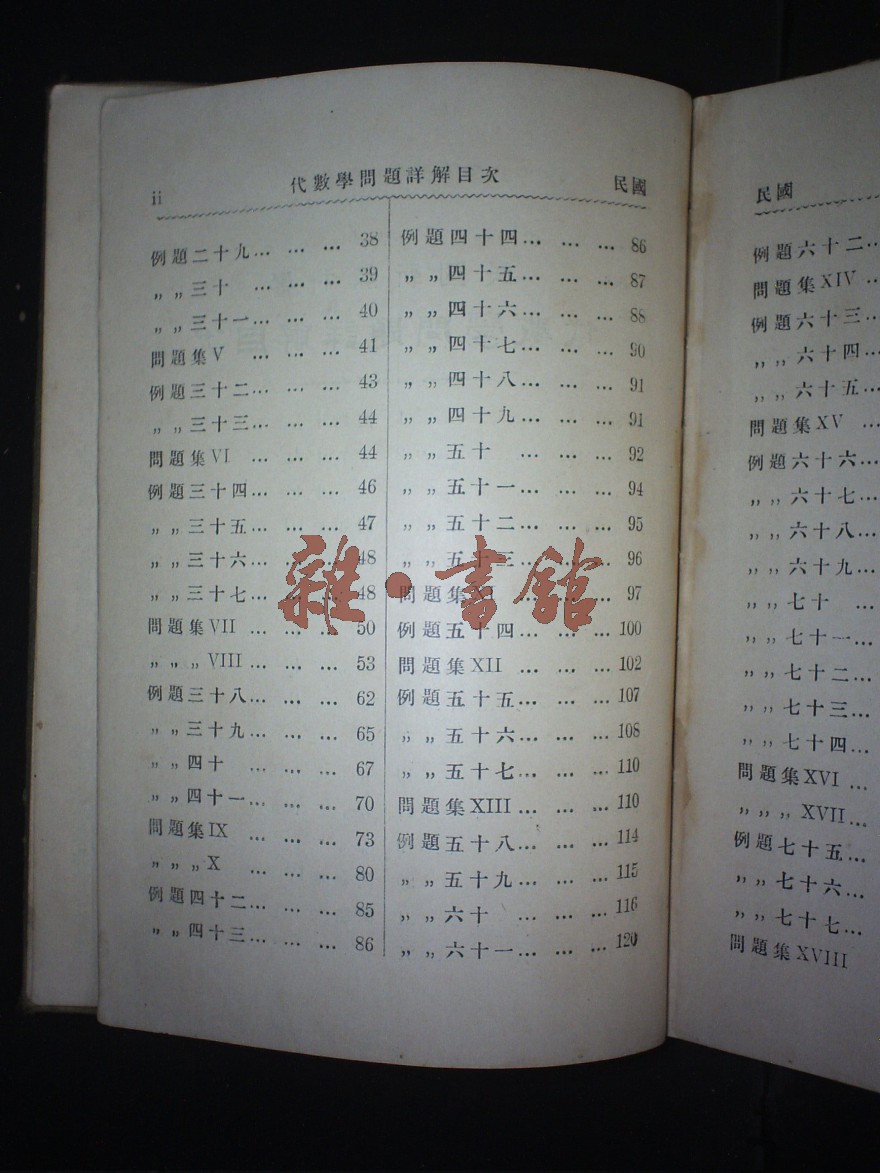 ii 代數學問題詳解目次 民國
例題二十九… … … 38
〃〃三十 … … … 39
〃〃三十一… … … 40
問題集V … … … 41
例題三十二… … … 43
〃〃三十三… … … 44
問題集VI … … … 44
例題三十四… … … 46
〃〃三十五… … … 47
〃〃三十六… … … 48
〃〃三十七… … … 48
問題集VII … … … 50
〃〃〃VIII… … … 53
例題三十八… … … 62
〃〃三十九… … … 65
〃〃四十 … … … 67
〃〃四十一… … … 70
問題集IX … … … 73
〃〃〃X … … … 80
例題四十二… … … 85
〃〃四十三… … … 86
例題四十四… … … 86
〃〃四十五… … … 87
〃〃四十六… … … 88
〃〃四十七… … … 90
〃〃四十八… … … 91
〃〃四十九… … … 91
〃〃五十 … … … 92
〃〃五十一… … … 94
〃〃五十二… … … 95
〃〃五十三… … … 96
問題集XI … … … 97
例題五十四… … … 100
問題集XII … … … 102
例題五十五… … … 107
〃〃五十六… … … 108
〃〃五十七… … … 110
問題集XIII… … … 110
例題五十八… … … 114
〃〃五十九… … … 115
〃〃六十 … … … 116
〃〃六十一… … … 120
雜·書館
民國
例題六十二…
問題集XIV …
例題六十三…
〃〃六十四…
〃〃六十五…
問題集XV …
例題六十六…
〃〃六十七…
〃〃六十八…
〃〃六十九…
〃〃七十 …
〃〃七十一…
〃〃七十二…
〃〃七十三…
〃〃七十四…
問題集XVI …
〃〃〃XVII…
例題七十五…
〃〃七十六…
〃〃七十七…
問題集XVIII